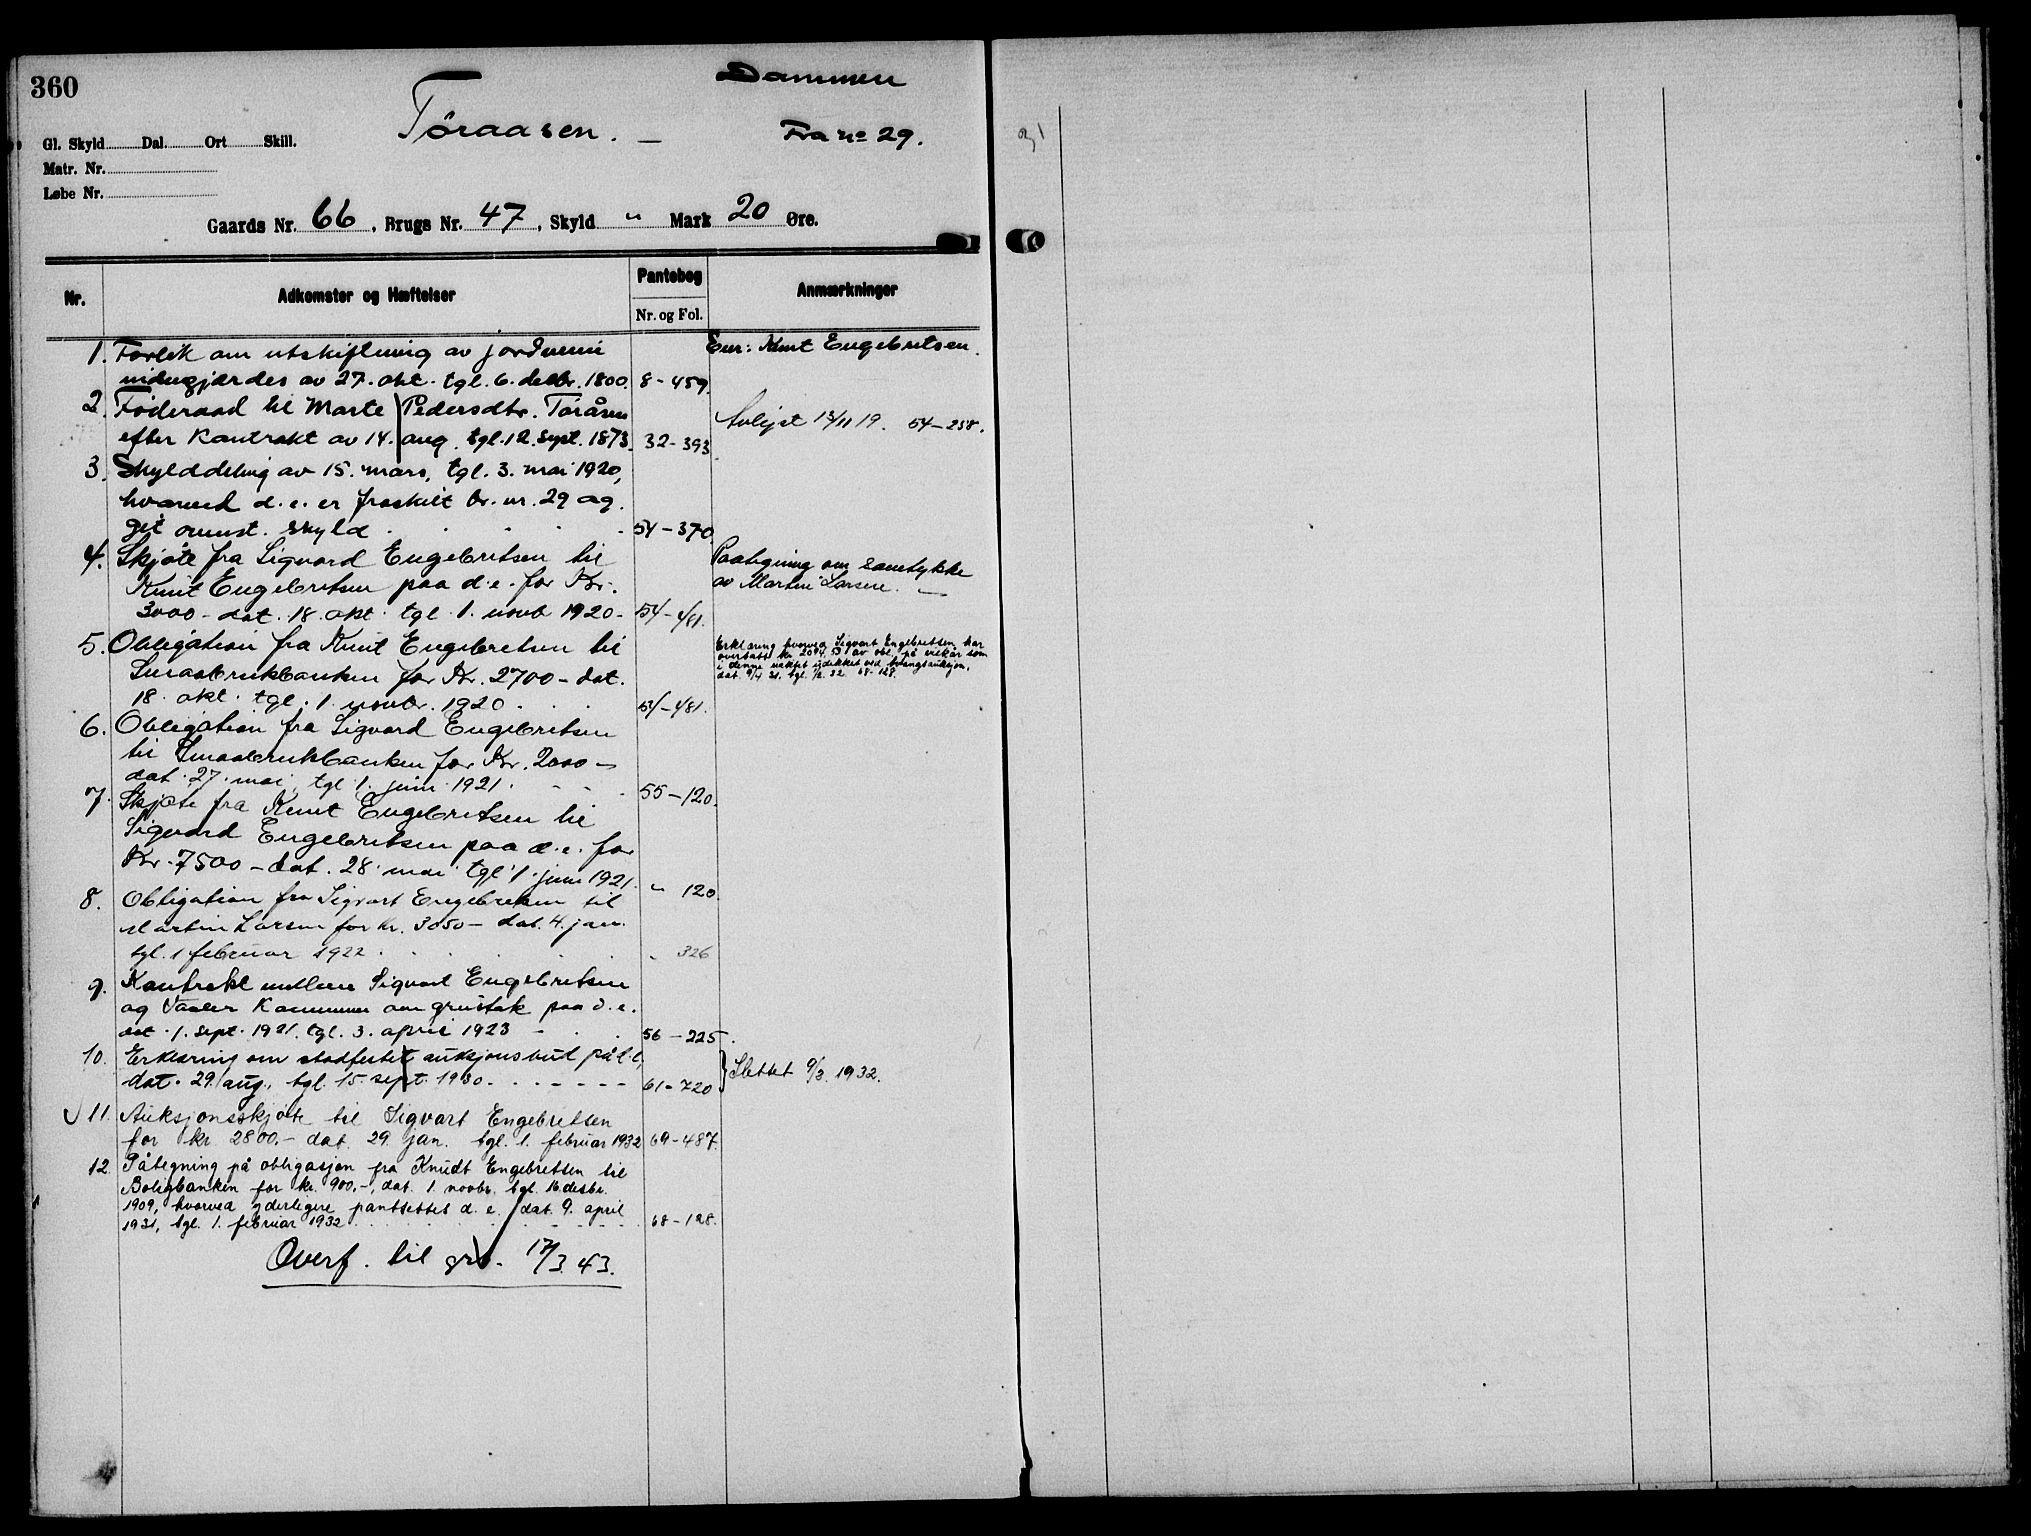 360
Dammen
Tøraasen. —
Fra no 29.
Gl. Skyld Dal. Ort Skill.
Matr. Nr.
Løbe Nr.
Gaards Nr. 66, Brugs Nr. 47, Skyld " Mark 20 Øre.
Nr. Adkomster og Hæftelser Pantebog Nr. og Fol. Anmærkninger
Eier: Knut Engebretsen.
1. Forlik om utskiftning av jordveien
av 27. okt. tgl. 6. decbr. 1800. 8-459.
2. Føderaad til Marte Pedersdtr. Toråsen
efter Kontrakt av 14. aug. tgl. 12. sept. 1873. 32-393
Avlyst 13/11 19. 54-258.
3. Skylddeling av 15. mars, tgl. 3. mai 1920,
hvorved d.e. er fraskilt br. nr. 29 og
git ovenst. skyld 54-370.
4. Skjøte fra Sigvard Engebretsen til
Knut Engebretsen paa d.e. for Kr.
3000- dat. 18. okt. tgl. 1. novb 1920- 54-481.
Paategning om samtykke
av Martin Larsen.
5. Obligation fra Knut Engebretsen til
Smaabrukbanken for Kr. 2700- dat.
18. okt. tgl. 1. novbr. 1920. 54-481.
Erklæring hvorved Sigvart Engebretsen har
overtatt kr. 2094.53 av obl. på vilkår som
i denne udekket ved tvangsauksjon,
dat. 9/4 31. tgl. 1/2. 32 68-128.
6. Obligation fra Sigvard Engebretsen
til Smaabrukbanken for Kr. 2000-
dat. 27. mai, tgl. 1. juni 1921. 55-120.
7. Skjøte fra Knut Engebretsen til
Sigvard Engebretsen paa d.e. for
Kr. 7500- dat. 28. mai tgl 1. juni 1921. " 120.
8. Obligation fra Sigvart Engebretsen til
Martin Larsen for kr. 3050- dat. 4. jan.
tgl. 1 februar 1922. " 326
9. Kontrakt mellem Sigvart Engebretsen
og Vaaler Kommune om grustak paa d.e.
dat. 1. sept. 1921. tgl. 3. april 1923 56-225.
10. Erklæring om stadfestet auksjonsbud på d.e.,
dat. 29. aug., tgl. 15. sept. 1930. 61-720
Slettet 9/3. 1932.
11. Auksjonsskjøte til Sigvart Engebretsen
for kr 2800.- dat. 29. jan. tgl. 1. februar 1932 69-487.
12. Påtegning på obligasjon fra Knudt Engebretsen til
Boligbanken for kr. 900.-, dat. 1. novbr. tgl. 16 desbr.
1909, hvorved yderligere pantsettes d.e. dat. 9. april
1931, tgl. 1. februar 1932 68-128.
Overf. til grb. 17/3. 43.
31